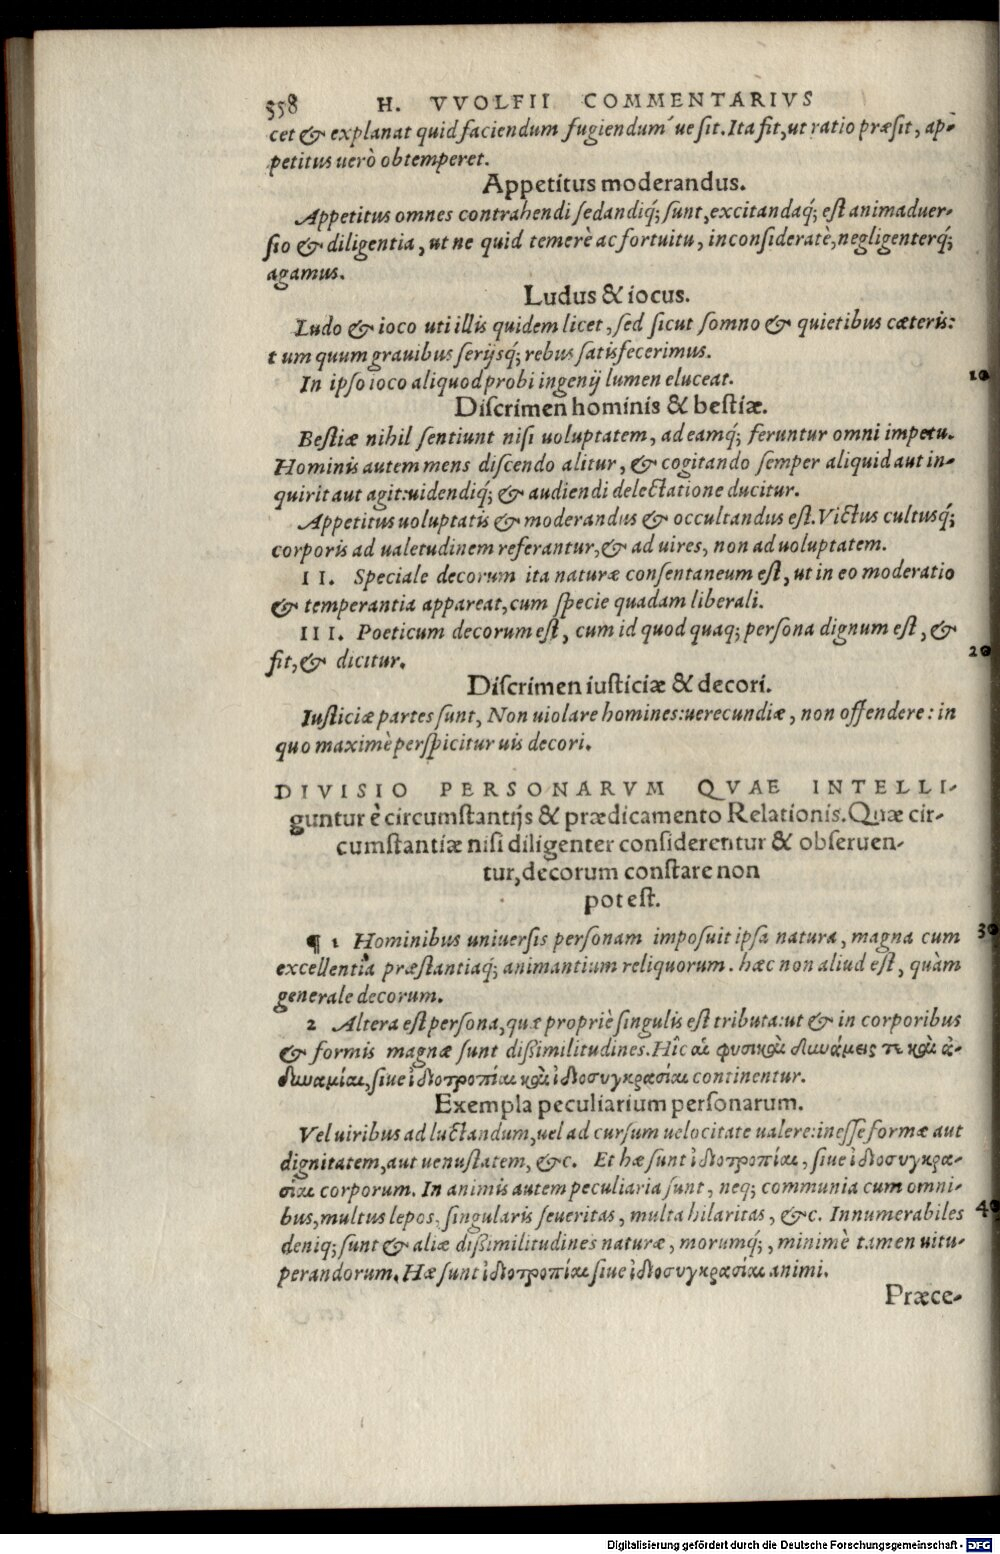 358 H. VVOLFII COMMENTARIVS
cet & explanat quid faciendum fugiendum´ue sit. Ita fit, ut ratio præsit, ap-
petitus uerò obtemperet.
Appetitus moderandus.
Appetitus omnes contrahendi sedandiq́; sunt, excitandaq́; est animaduer-
sio & diligentia, ut ne quid temerè ac fortuitu, inconsideratè, negligenterq́;
agamus.
Ludus & iocus.
Ludo & ioco uti illis quidem licet, sed sicut somno & quietibus cæteris:
tum quum grauibus serijsq́; rebus satisfecerimus.
In ipso ioco aliquod probi ingenij lumen eluceat.
10
Discrimen hominis & bestiæ.
Bestiæ nihil sentiunt nisi uoluptatem, ad eamq́; feruntur omni impetu.
Hominis autem mens discendo alitur, & cogitando semper aliquid aut in-
quirit aut agit: uidendiq́; & audiendi delectatione ducitur.
Appetitus uoluptatis & moderandus & occultandus est. Victus cultusq́;
corporis ad ualetudinem referantur, & ad uires, non ad uoluptatem.
II. Speciale decorum ita naturæ consentaneum est, ut in eo moderatio
& temperantia appareat, cum specie quadam liberali.
III. Poeticum decorum est, cum id quod quaq; persona dignum est, &
20
fit, & dicitur.
Discrimen iusticiæ & decori.
Iusticiæ partes sunt, Non uiolare homines: uerecundiæ, non offendere: in
quo maximè perspicitur uis decori.
DIVISIO PERSONARVM QVAE INTELLI-
guntur è circumstantijs & prædicamento Relationis. Quæ cir-
cumstantiæ nisi diligenter considerentur & obseruen-
tur, decorum constare non
potest.
¶ 1 Hominibus uniuersis personam imposuit ipsa natura, magna cum
30
excellentia præstantiaq́; animantium reliquorum. hæc non aliud est, quàm
generale decorum.
2 Altera est persona, quæ propriè singulis est tributa: ut & in corporibus
& formis magnæ sunt dißimilitudines. Hîc αἱ φυσικαὶ δυνάμεις τε καὶ ἀ-
δυναμίαι, siue ἰδιοτροπίαι καὶ ἰδιοσυγκρασίαι continentur.
Exempla peculiarium personarum.
Vel uiribus ad luctandum, uel ad cursum uelocitate ualere: inesse formæ aut
dignitatem, aut uenustatem, &c. Et hæ sunt ἰδιοτροπίαι, siue ἰδιοσυγκρα-
σίαι corporum. In animis autem peculiaria sunt, neq; communia cum omni-
bus, multus lepos, singularis seueritas, multa hilaritas, &c. Innumerabiles
40
deniq; sunt & aliæ dißimilitudines naturæ, morumq́;, minimè tamen uitu-
perandorum. Hæ sunt ἰδιοτροπίαι siue ἰδιοσυγκρασίαι animi.
Præce-
Digitalisierung gefördert durch die Deutsche Forschungsgemeinschaft - DFG